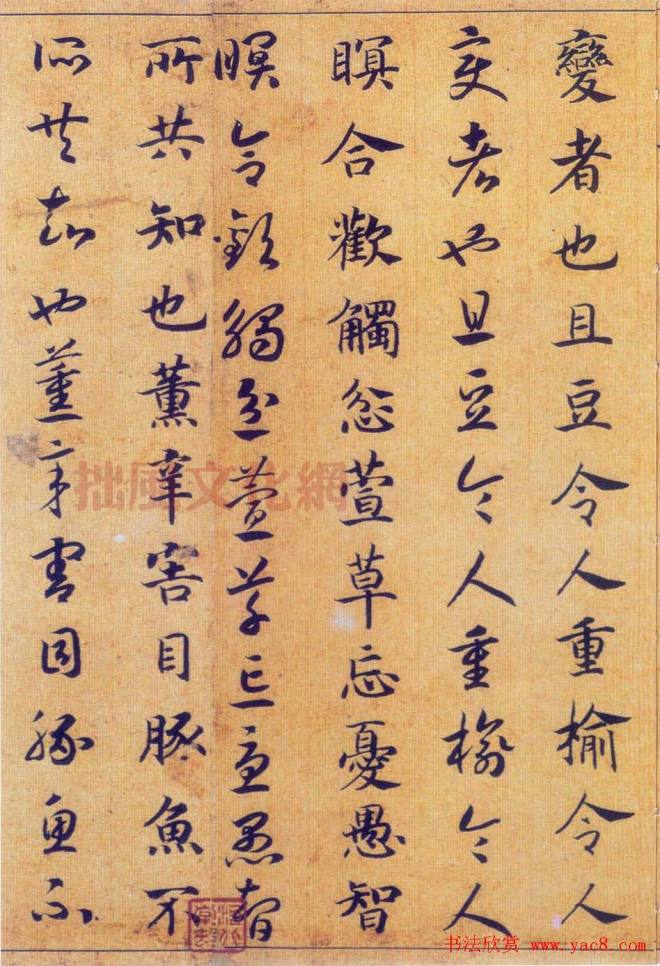 變者也且豆令人重榆令人
變者也且豆令人重榆令人
瞑合歡觸忿萱草忘憂愚智
瞑合歡觸忿萱草忘憂愚智
所共知也薰辛害目豚魚不
所共知也薰辛害目豚魚不
拙風文化網
书法欣赏 www.yac8.com